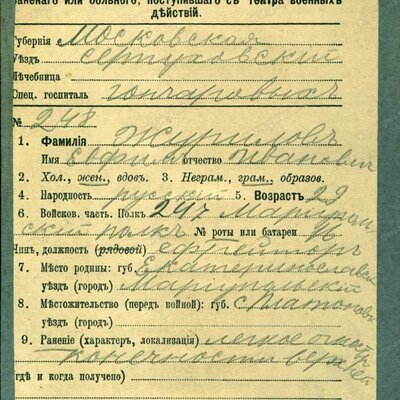 раненаго или больного, поступившаго съ театра военныхъ
дѣйствій.
Губернія Московская
Уѣздъ Серпуховскій
Лѣчебница
Спец. госпиталь Гончаровыхъ
№ 248
1. Фамилія Журиловъ
Имя Ефимъ Отчество Ивановичъ
2. Хол., жен., вдовъ. 3. Неграм., грам., образов.
4. Народность русскій 5. Возрастъ 29
6. Войсков. часть. Полкъ 247 Маріуполь
скій полкъ № роты или батареи
Чинъ, должность (рядовой) ефрейторъ
7. Мѣсто родины: губ. Екатеринославская
уѣздъ (городъ) Маріупольскій
8. Мѣстожительство (передъ войной): губ. с. Платоновка
уѣздъ (городъ)
9. Раненіе (характеръ, локализація) легкое
конечности верхней
гдѣ и когда получено)